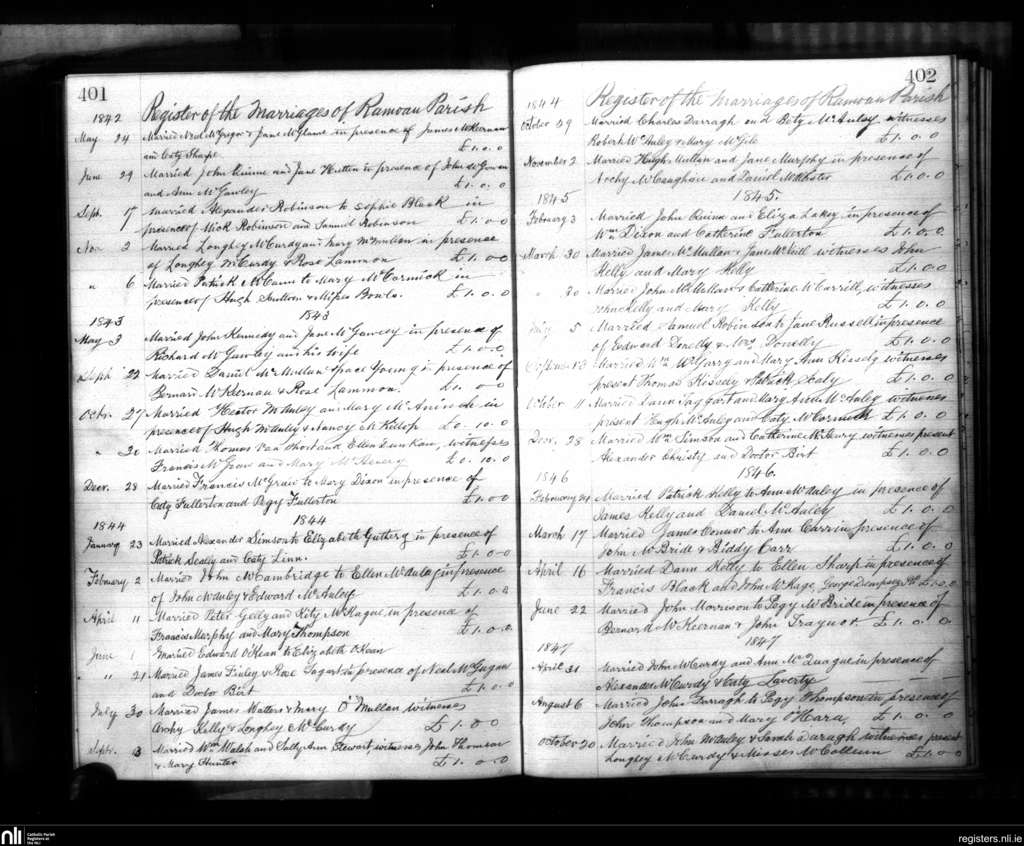 401
Register of the Marriages of Ramoan Parish
1842
May 24 Married Neal McGregor & Jane McGlame in presence of James McKiernan
and Caty Sharpe £1.0.0
June 29 Married John Quinn and Jane Hutton to presence of John McGowan
and Ann McGawley £1.0.0
Sept. 17 Married Alexander Robinson to Sophie Black in
presence of Mick Robinson and Samuel Robinson £1.0.0
Nov 2 Married Longhey McCurdy and Mary McMullan in presence
of Longhey McCurdy & Rose Lammon £1.0.0
" 6 Married Patrick McCann to Mary McCormick in
presence of Hugh & Miss £1.0.0
1843
1843
May 3 Married John Kennedy and Jane McGawley in presence of
Richard McGawley and his wife £1.0.0
Sept 22 Married Daniel McMullan Grace Young in presence of
Bernard McKeernan & Rose Lammon £1.0.0
Octr. 27 Married Hector McAuley and Mary in
presence of Hugh McAuley & Nancy McKillop £0.10.0
" 20 Married Thomas and Ellen Duncan, witnesses
Francis McGraw and Mary McHenery £0.10.0
Decr. 28 Married Francis McGraw to Mary Dixon in presence of
Caty Fullerton and Pegy Fullerton £1.0.0
1844
1844
January 23 Married Alexander Simson to Elizabeth in presence of
Patrick Scally and Caty Linn. £1.0.0
February 2 Married John McCambridge to Ellen McAulay in presence
of John McAuley & Edward McAuley £1.0.0
April 11 Married Peter Gelly and Kity McKague in presence of
Francis Murphy and Mary Thompson £1.0.0
June 1 Married Edward O'Kean to Elizabeth O'Kean
" " 21 Married James Finley & Rose Tagart in presence of Neal McGugan
and Doctor Birt £1.0.0
July 30 Married James Walters & Mary O'Mullan witnesses
Archy Kelly & Longley McCurdy £1.0.0
Septr. 13 Married Wm Walsh and Sally Ann Stewart, witnesses John Thomson
& Mary Hunter £1.0.0
402
Register of the Marriages of Ramoan Parish
1844
October 29 Married Charles Darragh and Bety McAuley witnesses
Robert McAuley & Mary McGile £1.0.0
November 2 Married Hugh Mullan and Jane Murphy in presence of
Archy McCaughan and Daniel McAlister £1.0.0
1845
1845.
February 3 Married John Quinn and Eliza Lakey in presence of
Wm Dixon and Catherine Fullerton £1.0.0
March 30 Married James McMullan & Jane McNeill witnesses John
Kelly and Mary Kelly £1.0.0
" 30 Married John McMullan & Catherine McCarrill, witnesses
John Kelly and Mary Kelly £1.0.0
July 5 Married Samuel Robinson to Jane Russell in presence
of Edward Donelly & Mrs Donelly £1.0.0
September 13 Married Wm McGarry and Mary Ann Kissedy witnesses
present Thomas Kissedy & Patrick Scaly £1.0.0
October 11 Married Taggart and Mary Ann McAuley witnesses
present Hugh McAuley and Caty McCormick £1.0.0
Decr. 28 Married Wm Simson and Catherine McHenry witnesses present
Alexander Christy and Doctor Birt £1.0.0
1846
1846.
February 24 Married Patrick Kelly to Ann McAuley in presence of
James Kelly and Daniel McAuley £1.0.0
March 17 Married James Connor to Ann Carr in presence of
John McBride & Biddy Carr £1.0.0
April 16 Married Dann Kelly to Ellen Sharp in presence of
Francis Black and John McKage, George Dempsey £1.0.0
June 22 Married John Morrison to Pegy McBride in presence of
Bernard McKeernan & John Traynor. £1.0.0
1847
1847
April 31 Married John McCurdy and Ann McQuague in presence of
Alexander McCurdy & Caty Laverty
August 6 Married John Darragh to Pegy Thompson in presence of
John Thompson and Mary O'Hara, £1.0.0
October 20 Married John McAuley & Sarah Daragh witnesses present
Longley McCurdy & Misses McCollum £1.0.0
nli
Catholic Parish
Registers at
the NLI
registers.nli.ie